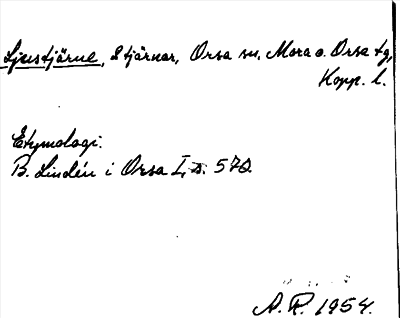 Ljustjärne, 2 tjärnar, Orsa sn. Mora o. Orsa tg,
Kopp. l.
Etymologi:
B. Lindén i Orsa I, s. 570.
A. R. 1954.